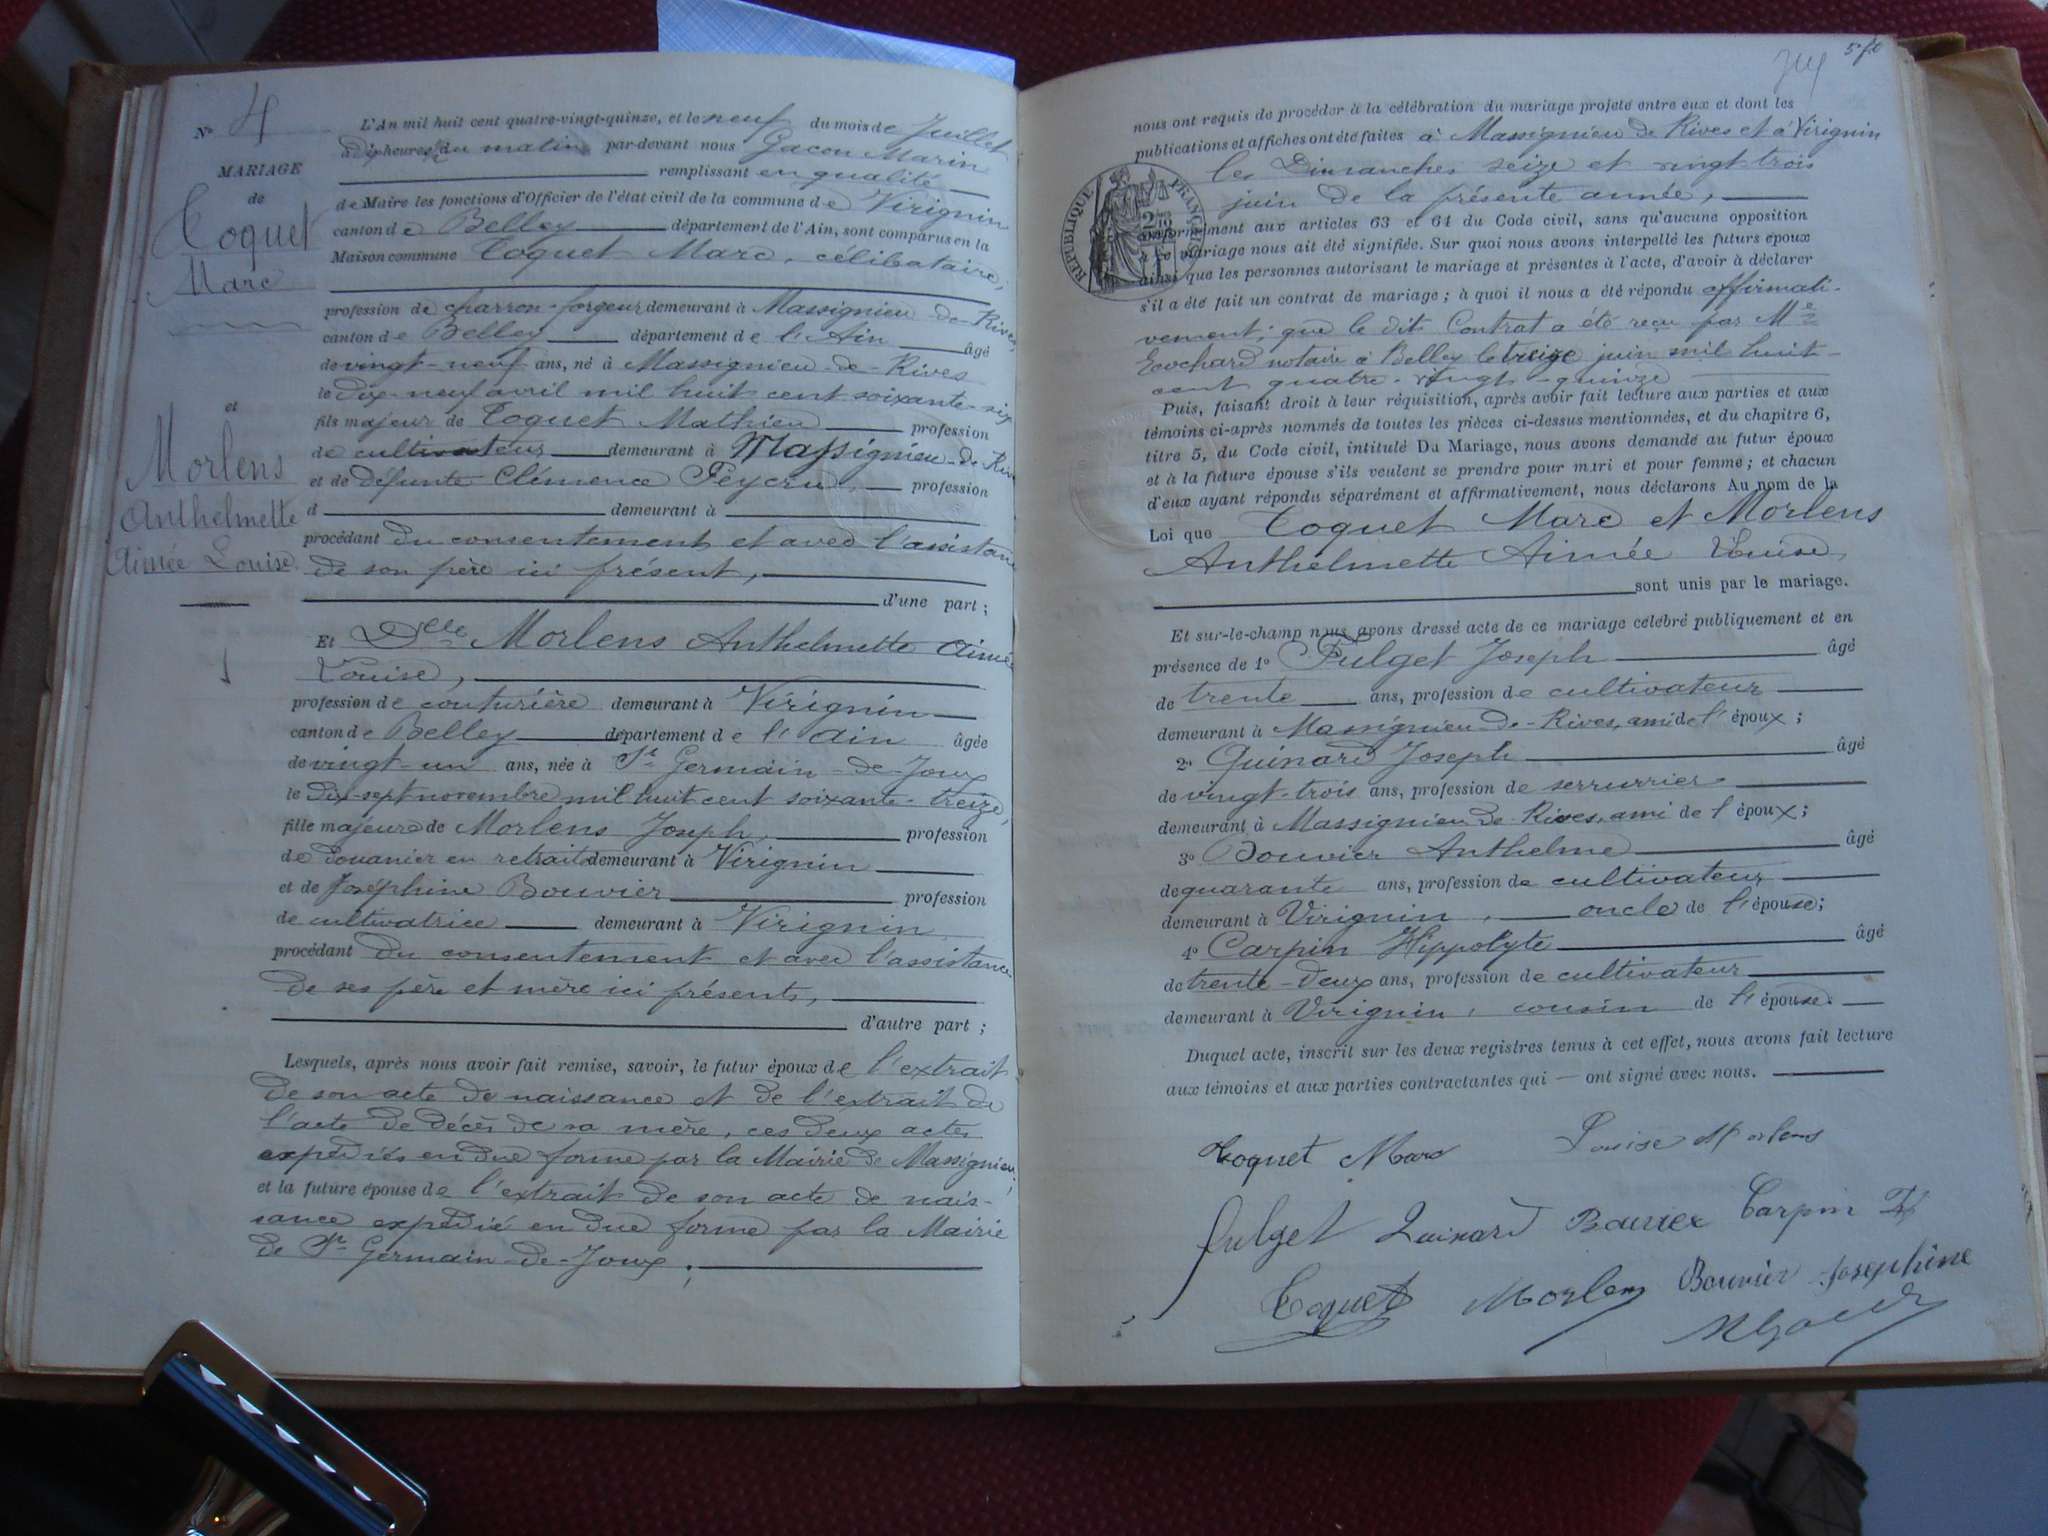 No 4
MARIAGE
de
Toquet
Marc
et
Morlens
Anthelmette
Aimée Louise.
L'An mil huit cent quatre-vingt-quinze, et le neuf du mois de Juillet
à dix heures du matin par-devant nous Gacon Marin
remplissant en qualité
de Maire les fonctions d'Officier de l'état civil de la commune de Virignin
canton de Belley département de l'Ain, sont comparus en la
Maison commune Toquet Marc, célibataire,
profession de charron-forgeur demeurant à Massignieu-de-Rives,
canton de Belley département de l'Ain âgé
de vingt-neuf ans, né à Massignieu-de-Rives
le dix-neuf avril mil huit cent soixante-six
fils majeur de Toquet Mathieu profession
de cultivateur demeurant à Massignieu-de-Rives
et de défunte Clémence Peycru, profession
d demeurant à
procédant du consentement et avec l'assistance
de son père ici présent,
d'une part ;
Et Delle Morlens Anthelmette Aimée
Louise,
profession de couturière demeurant à Virignin
canton de Belley département de l'Ain âgée
de vingt-un ans, née à St Germain-de-Joux
le dix-sept novembre mil huit cent soixante-treize,
fille majeure de Morlens Joseph, profession
de douanier en retraite demeurant à Virignin
et de Joséphine Bouvier profession
de cultivatrice demeurant à Virignin
procédant du consentement et avec l'assistance
de ses père et mère ici présents,
d'autre part ;
Lesquels, après nous avoir fait remise, savoir, le futur époux de l'extrait
de son acte de naissance et de l'extrait de
l'acte de décès de sa mère, ces deux actes
expédiés en due forme par la Mairie de Massignieu;
et la future épouse de l'extrait de son acte de nais-
sance expédié en due forme par la Mairie
de St Germain-de-Joux ;
570
nous ont requis de procéder à la célébration du mariage projeté entre eux et dont les
publications et affiches ont été faites à Massignieu de Rives et à Virignin
les Dimanches seize et vingt trois
juin de la présente année,
conformément aux articles 63 et 64 du Code civil, sans qu'aucune opposition
à ce mariage nous ait été signifiée. Sur quoi nous avons interpellé les futurs époux
ainsi que les personnes autorisant le mariage et présentes à l'acte, d'avoir à déclarer
s'il a été fait un contrat de mariage ; à quoi il nous a été répondu affirmati-
vement; que le dit Contrat a été reçu par Me
notaire à Belley le treize juin mil huit-
cent quatre-vingt-quinze
RÉPUBLIQUE FRANÇAISE
Puis, faisant droit à leur réquisition, après avoir fait lecture aux parties et aux
témoins ci-après nommés de toutes les pièces ci-dessus mentionnées, et du chapitre 6,
titre 5, du Code civil, intitulé Du Mariage, nous avons demandé au futur époux
et à la future épouse s'ils veulent se prendre pour mari et pour femme ; et chacun
d'eux ayant répondu séparément et affirmativement, nous déclarons Au nom de la
Loi que Toquet Marc et Morlens
Anthelmette Aimée Louise,
sont unis par le mariage.
Et sur-le-champ nous avons dressé acte de ce mariage célébré publiquement et en
présence de 1o Fulget Joseph âgé
de trente ans, profession de cultivateur
demeurant à Massignieu-de-Rives, ami de l'époux ;
2o Guinard Joseph âgé
de vingt-trois ans, profession de serrurrier
demeurant à Massignieu de Rives, ami de l'époux ;
3o Bouvier Anthelme âgé
de quarante ans, profession de cultivateur
demeurant à Virignin, oncle de l'épouse;
4o Carpin Hippolyte âgé
de trente-deux ans, profession de cultivateur
demeurant à Virignin, cousin de l'épouse.
Duquel acte, inscrit sur les deux registres tenus à cet effet, nous avons fait lecture
aux témoins et aux parties contractantes qui — ont signé avec nous.
Toquet Marc Louise Morlens
fulget Quinard Bouvier Carpin H
Toquet Morlens Bouvier Josephine